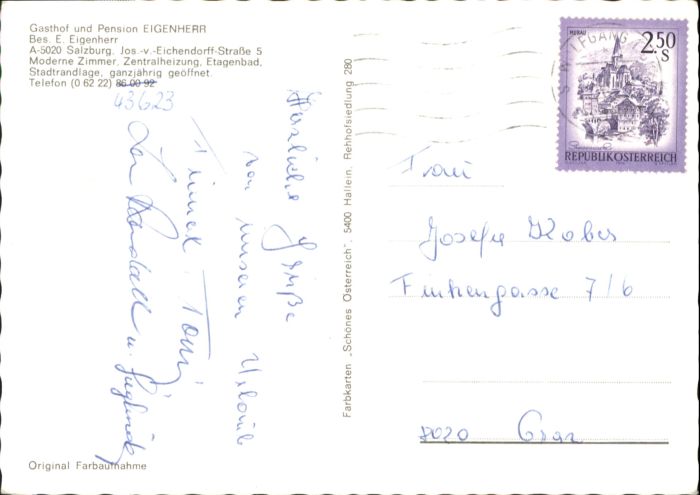 Gasthof und Pension EIGENHERR
Bes. E. Eigenherr
A-5020 Salzburg, Jos.-v.-Eichendorff-Straße 5
Moderne Zimmer, Zentralheizung, Etagenbad,
Stadtrandlage, ganzjährig geöffnet.
Telefon (0 62 22) 86 00 92
43623
Herzliche Grüße
von unseren Urlaub
Toni
u.
Original Farbaufnahme
Farbkarten „Schönes Österreich", 5400 Hallein, Rehhofsiedlung 280
MURAU
2.50
S
REPUBLIK ÖSTERREICH
Frau
Josefa Kober
Finkengasse 7/6
8020 Graz